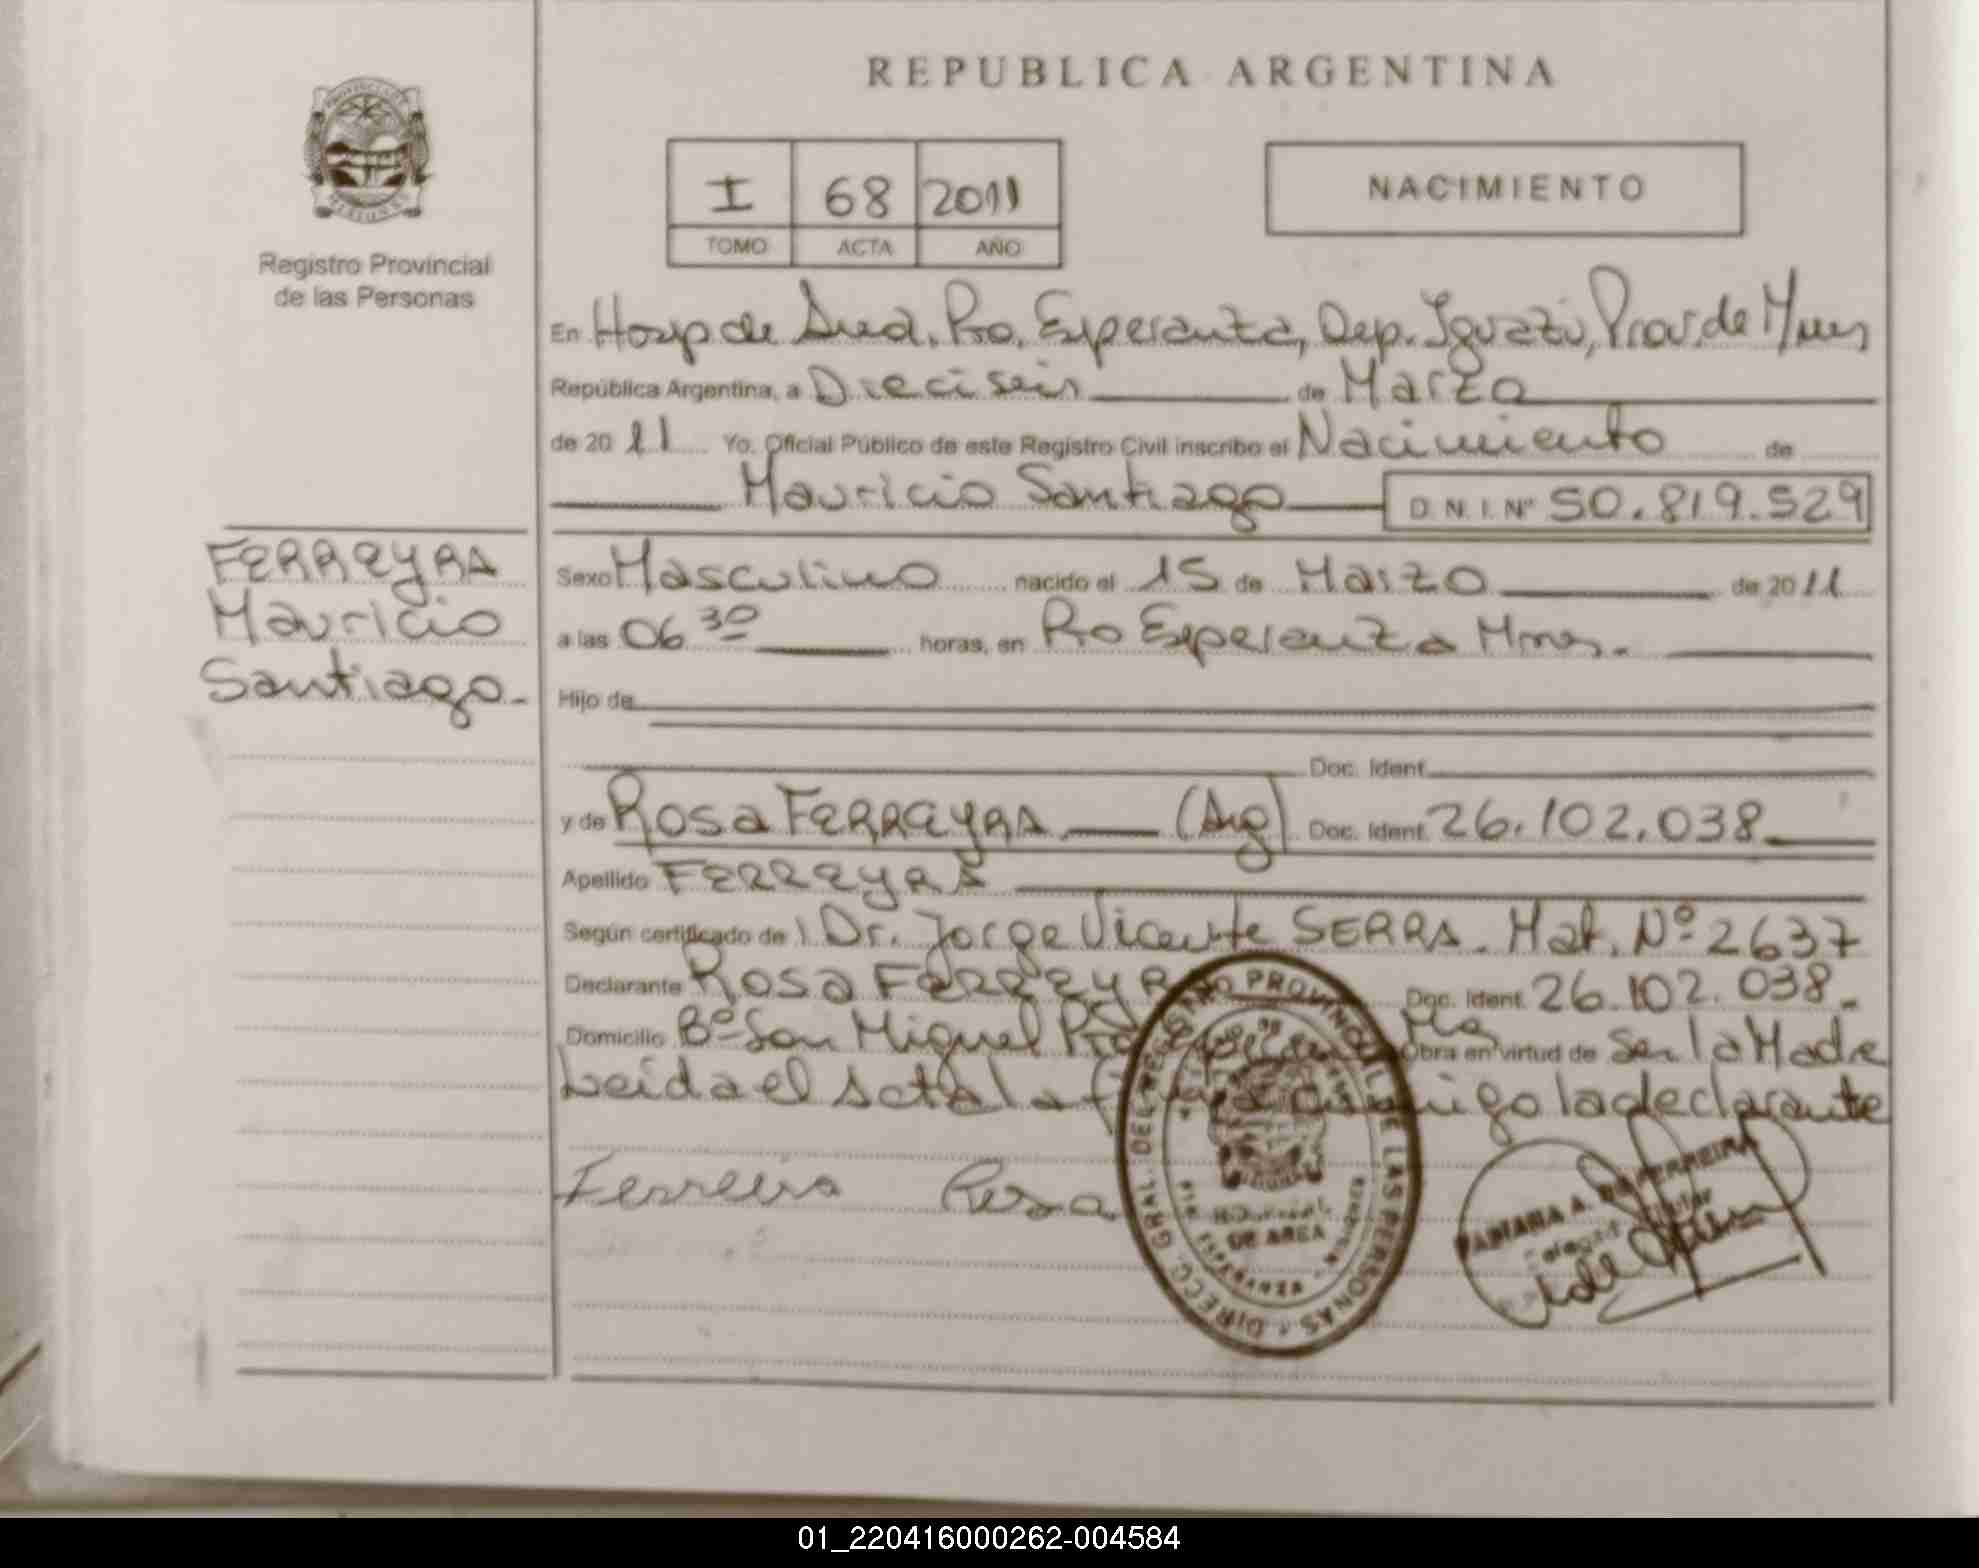 REPUBLICA ARGENTINA
PROVINCIA DE
MISIONES
Registro Provincial
de las Personas
I 68 2011
TOMO ACTA AÑO
NACIMIENTO
En Hosp de Area, Pto. Esperanza, Dep. Iguazú, Prov. de Mnes
República Argentina, a Dieciseis de Marzo
de 20 11 Yo, Oficial Público de este Registro Civil inscribo el Nacimiento de
Mauricio Santiago D.N.I. Nº 50.819.529
FERREYRA
Mauricio
Santiago.-
Sexo Masculino nacido el 15 de Marzo de 20 11
a las 06 30 horas, en Pto Esperanza Mnes.
Hijo de
Doc. Ident.
y de Rosa FERREYRA (Arg) Doc. Ident. 26.102.038
Apellido FERREYRA
Según certificado de Dr. Jorge Vicente SERRA. Mat. Nº 2637
Declarante Rosa FERREYRA Doc. Ident. 26.102.038.-
Domicilio Bº San Miguel Pto Mnes Obra en virtud de Ser la Madre
Leida el Acta la firma conmigo la declarante
Ferreira Rosa
DIRECC. GRAL. DEL REGISTRO PROVINCIAL DE LAS PERSONAS
DE AREA
FABIANA A. FERREIRA
01_220416000262-004584